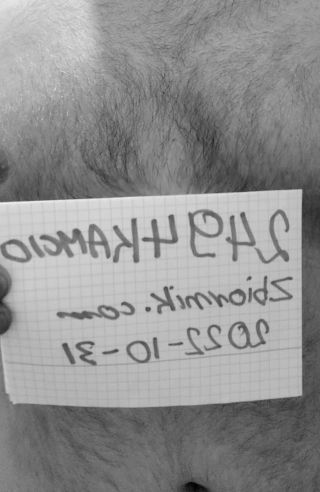 2494KAMCIO
Zbiornik.com
2022-10-31